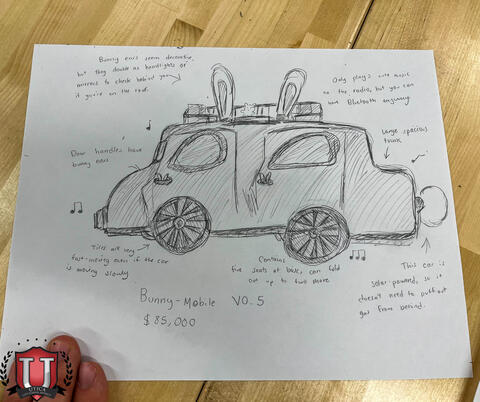 Bunny ears seem decorative,
but they double as headlights or
mirrors to check behind you
if you're on the roof.
Only plays cute music
on the radio, but you can
use Bluetooth anyway
Large, spacious
trunk
Door handles have
bunny ears
Tires are very
fast-moving even if the car
is moving slowly
Contains
five seats at base, can fold
out up to two more
This car is
solar-powered, so it
doesn't need to puff out
gas from behind.
Bunny-Mobile V0.5
$85,000
U
UTICA